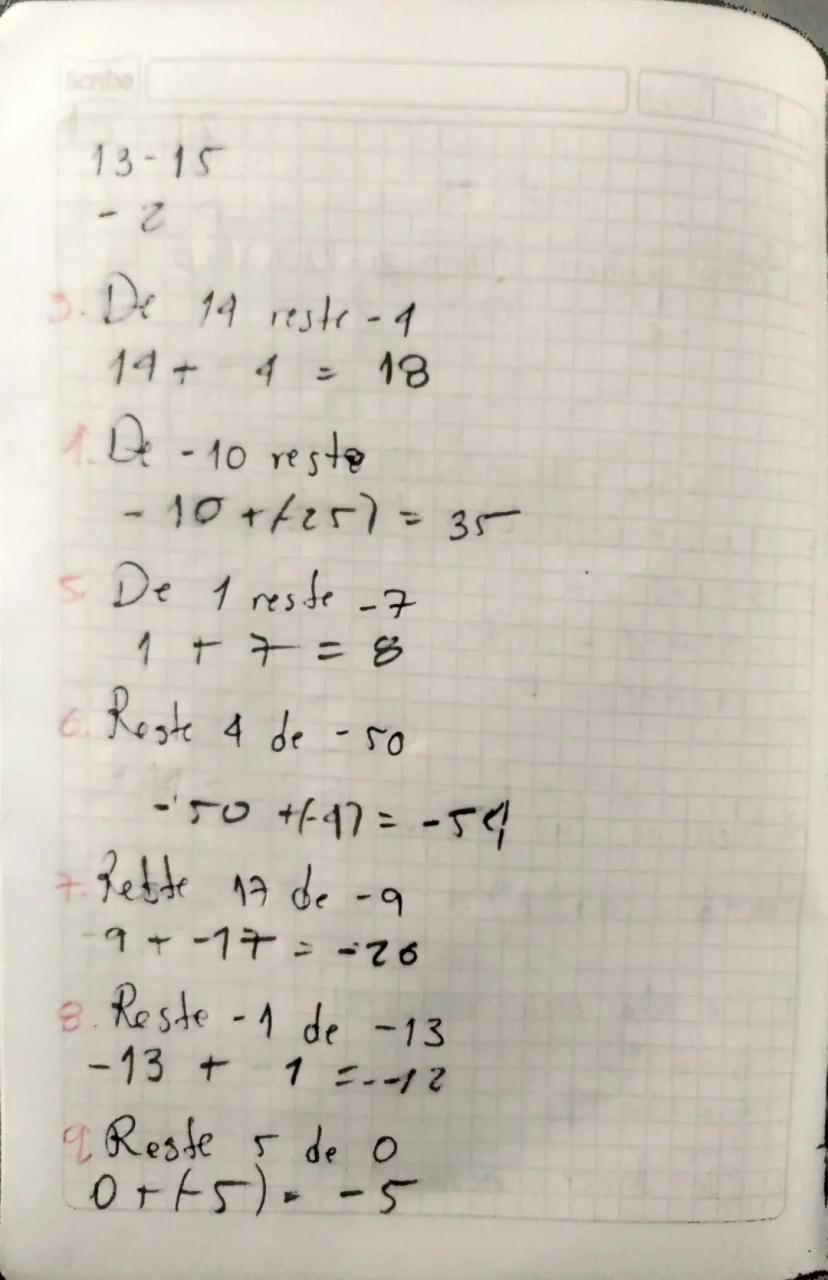 Scribe
13-15
- 2
3. De 14 reste -4
14 + 4 = 18
4. De -10 reste
- 10 + (-25) = 35
5. De 1 reste -7
1 + 7 = 8
6. Reste 4 de -50
-50 +(-4) = -54
7. Reste 17 de -9
-9 + -17 = -26
8. Reste -1 de -13
-13 + 1 = -12
9. Reste 5 de 0
0 + (-5) = -5